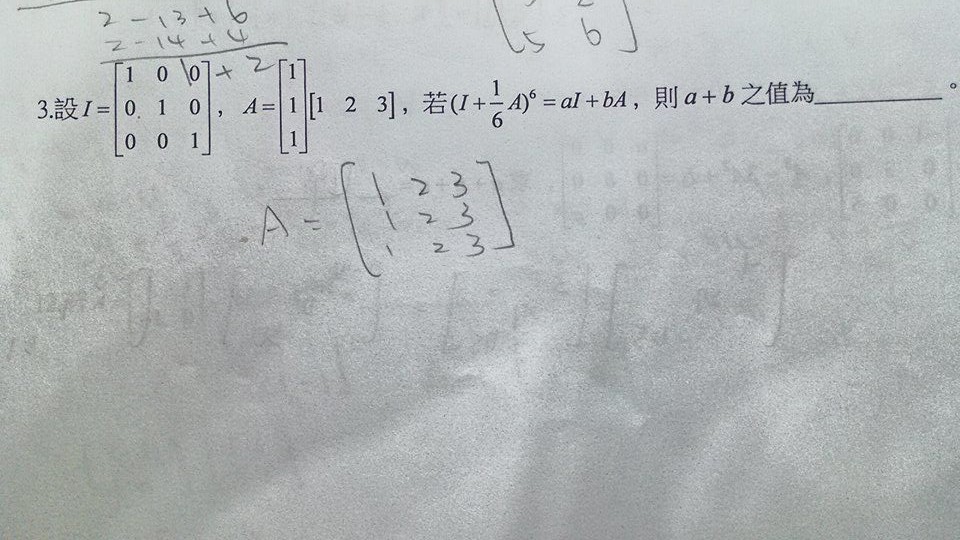 2 - 13 + 6
2 - 14 + 4
+ 2
5 6
3.設 I = [1 0 0; 0 1 0; 0 0 1], A = [1; 1; 1][1 2 3], 若(I + 1/6 A)^6 = aI + bA, 則 a + b 之值為__________。
A = [1 2 3
1 2 3
1 2 3]